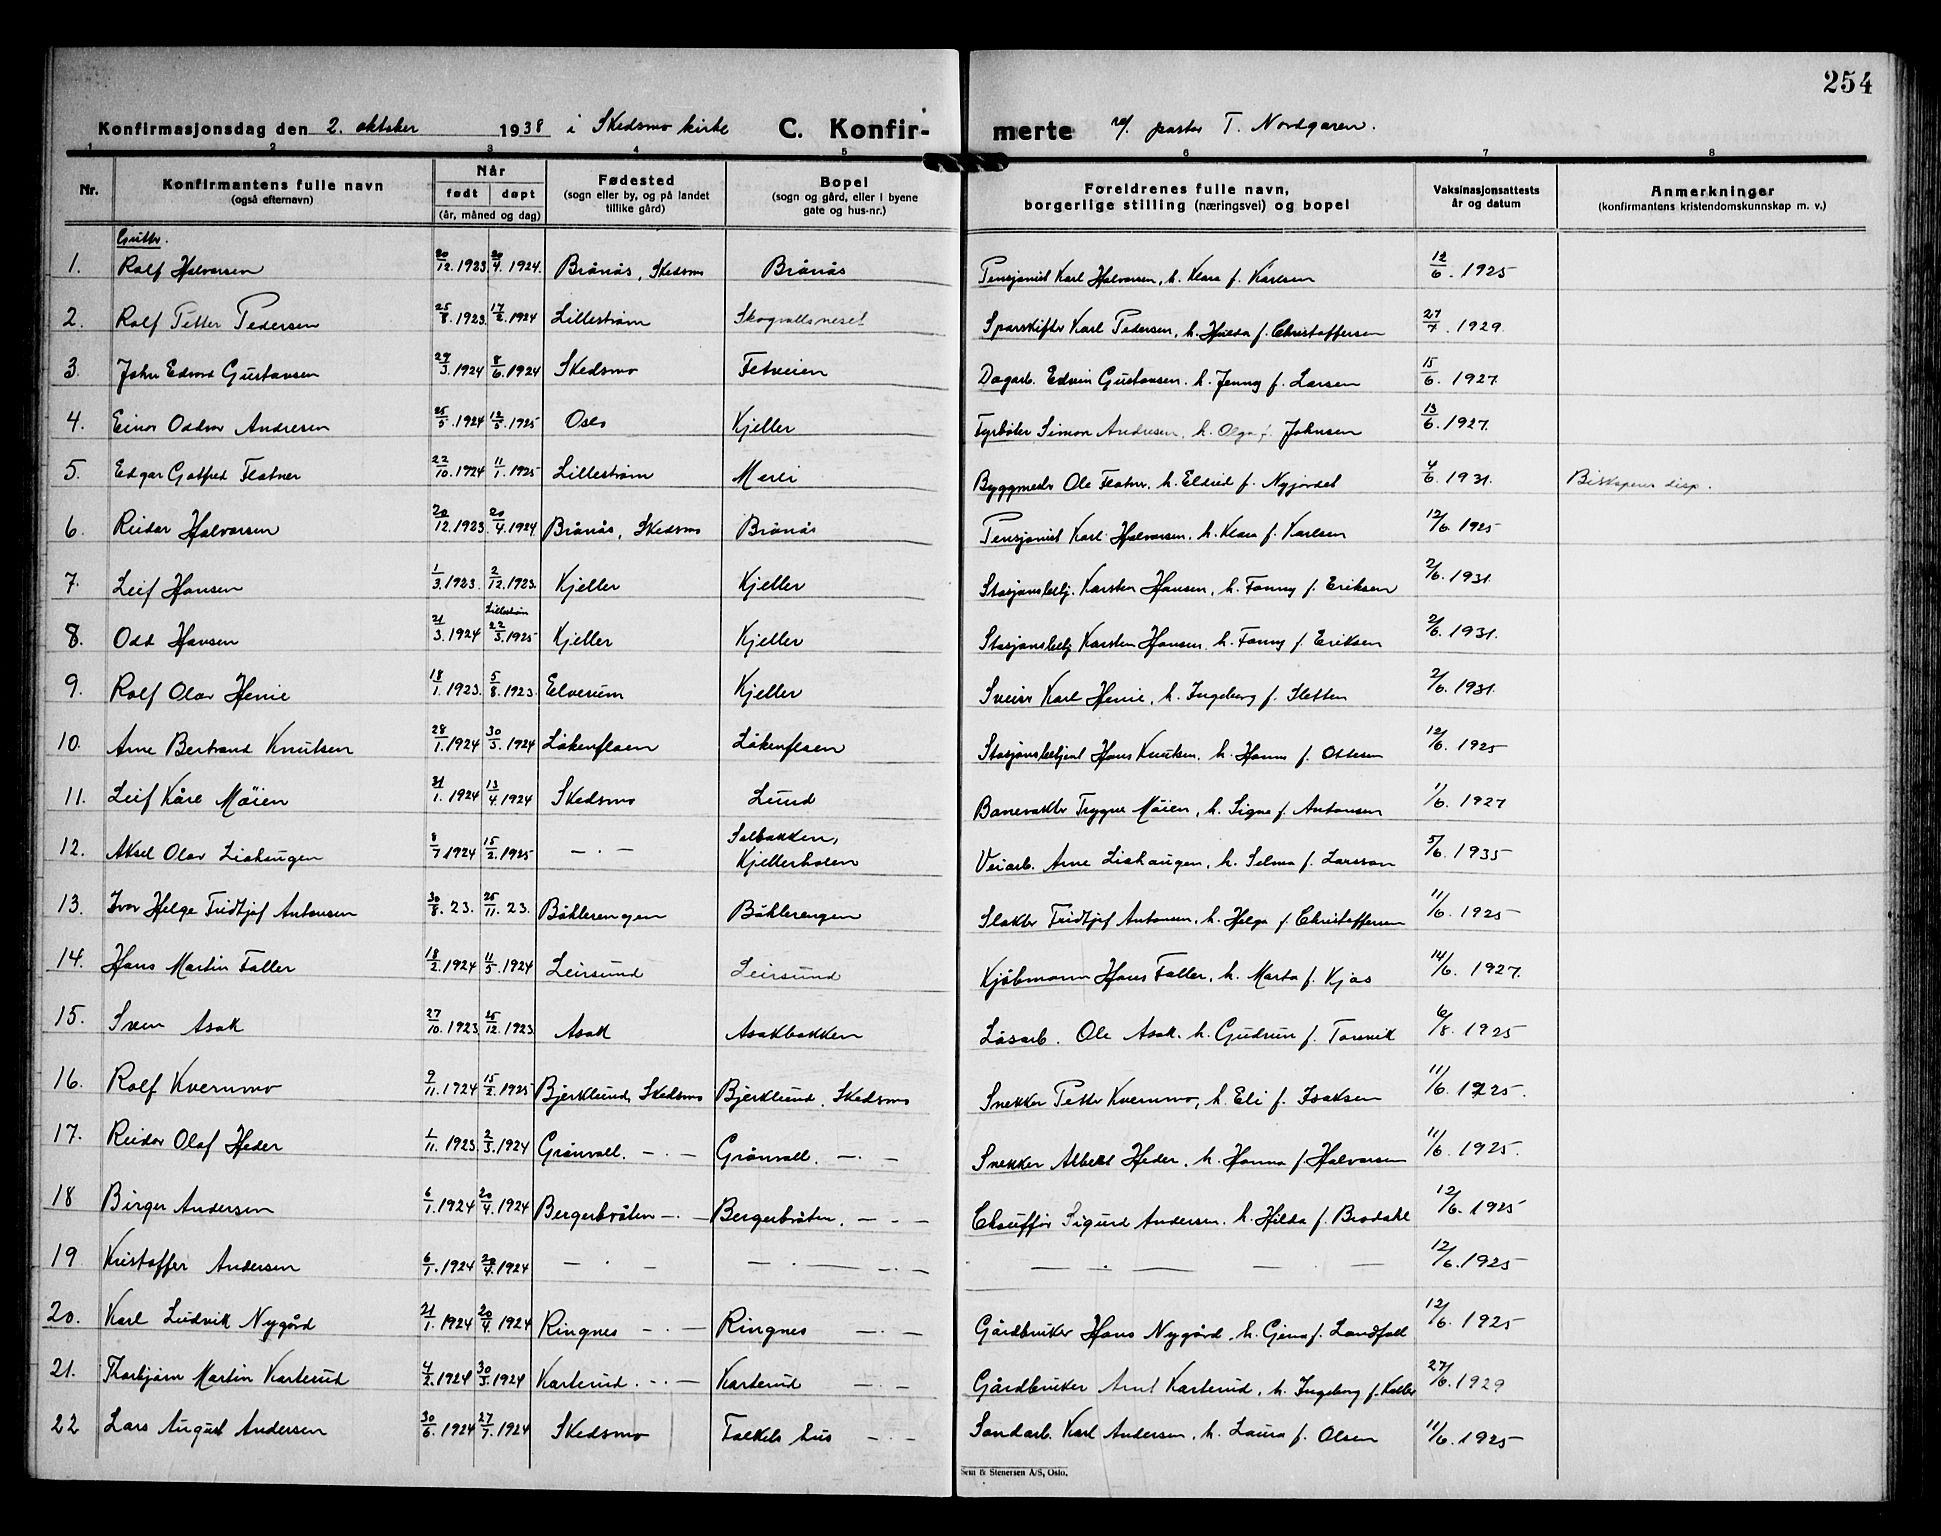 254
Konfirmasjonsdag den 2. oktober 1938 i Skedsmo kirke C. Konfir- merte v/. pastor T. Nordgaren.
1 2 3 4 5 6 7 8
Nr. Konfirmantens fulle navn (også efternavn) Når født døpt (år, måned og dag) Fødested (sogn eller by, og på landet tillike gård) Bopel (sogn og gård, eller i byene gate og hus-nr.) Foreldrenes fulle navn, borgerlige stilling (næringsvei) og bopel Vaksinasjonsattests år og datum Anmerkninger (konfirmantens kristendomskunnskap m. v.)
Gutter.
1. Rolf Halvorsen 20/12. 1923. 20/4. 1924. Brånås, Skedsmo Brånås Pensjonist Karl Halvorsen, h. Klara f. Karlsen 12/6. 1925
2. Rolf Petter Pedersen 25/8. 1923. 17/2. 1924 Lillestrøm Skogvollsneset Sporskifter Karl Pedersen, h. Hilda f. Christoffersen 27/7. 1929.
3. John Edvard Gustavsen 29/3. 1924 8/6. 1924 Skedsmo Fetveien Dagarb. Edvin Gustavsen. h. Jenny f. Larsen 15/6. 1927.
4. Einar Oddvar Andresen 25/5. 1924 12/5. 1925 Oslo Kjeller Fyrbøter Simon Andresen, h. Olga f. Johnsen 13/6. 1927.
5. Edgar Gotfred Flatner 22/10. 1924 11/1. 1925 Lillestrøm Merli Byggmester Ole Flatner, h. Eldrid f. Nyjordet 4/6. 1931. Biskopens disp.
6. Reidar Halvorsen 20/12. 1923. 20/4. 1924 Brånås, Skedsmo Brånås Pensjonist Karl Halvorsen, h. Klara f. Karlsen 12/6. 1925
7. Leif Hansen 1/3. 1923. 2/12. 1923. Kjeller Kjeller Stasjonsbetj. Karsten Hansen, h. Fanny f. Eriksen 2/6. 1931.
Lillestrøm
8. Odd Hansen 21/3. 1924 22/3. 1925 Kjeller Kjeller Stasjonsbetj Karsten Hansen, h. Fanny f. Eriksen 2/6. 1931.
9. Rolf Olav Henie 18/1. 1923. 5/8. 1923. Elverum Kjeller Sveiser Karl Henie, h. Ingeborg f. Sletten 2/6. 1931.
10. Arne Bertrand Knutsen 28/1. 1924 30/3. 1924 Løkenflaen Løkenflaen Stasjonsbetjent Hans Knutsen, h. Hanna f. Ottesen 12/6. 1925
11. Leif Kåre Møien 31/1. 1924 13/4. 1924 Skedsmo Lund Banevokter Trygve Møien, h. Signe f. Antonsen 11/6. 1927
12. Aksel Olav Liahaugen 8/7. 1924 15/2. 1925 — . — Solbakken, Kjellerholen Veiarb. Arne Liahaugen, h. Selma f. Larsson 5/6. 1935
13. Ivar Helge Fridtjof Antonsen 30/8. 23. 25/11. 23. Bøhlerengen Bøhlerengen Slakter Fridtjof Antonsen, h. Helga f Christoffersen 11/6. 1925
14. Hans Martin Faller 18/2. 1924 11/5. 1924 Leirsund Leirsund Kjøbmann Hans Faller, h. Marta f. Kjos 14/6. 1927.
15. Sven Asak 27/10. 1923. 25/12. 1923. Asak Asakbakken Løsarb. Ole Asak. h. Gudrun f. Torsvik 6/8. 1925
16. Rolf Kvernmo 9/11. 1924 15/2. 1925 Bjerklund, Skedsmo Bjerklund, Skedsmo Snekker Petter Kvernmo, h. Eli f. Isaksen 11/6. 1925.
17. Reidar Olaf Heder 1/11. 1923. 2/3. 1924 Grønvoll. — . — Grønvoll. — . — Snekker Albert Heder, h. Hanna f Halvorsen 11/6. 1925.
18 Birger Andersen 6/1. 1924 20/4. 1924 Bergerbråten — . — Bergerbråten. — . — Chauffør Sigurd Andersen. h. Hilda f. Brodahl 12/6. 1925
19 Kristoffer Andersen 6/1. 1924 20/4. 1924 — . — — . — — . — — . — — . — 12/6. 1925
20. Karl Ludvik Nygård 21/1. 1924 20/4. 1924 Ringnes — . — Ringnes — . — Gårdbruker Hans Nygård, h. Gjena f. Landfall 12/6. 1925
21. Thorbjørn Martin Karterud 4/2. 1924 30/3. 1924 Karterud . — . — Karterud — . — Gårdbruker Arnt Karterud, h. Ingeborg f. Koller 27/6. 1929
22 Lars August Andersen 30/6. 1924 27/7. 1924 Skedsmo Falkels hus — . — Sandarb. Karl Andersen, h. Laura f. Olsen 11/6. 1925
Sem & Stenersen A/S, Oslo.